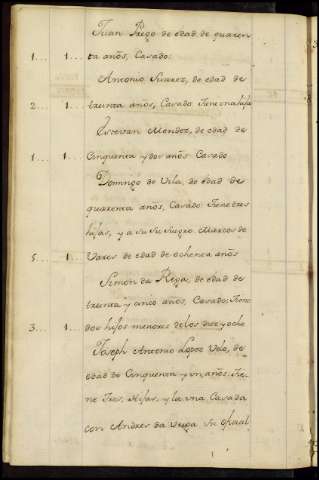 Juan Rego de edad de quaren
1... 1... ta años, Casado.
Antonio Suarez, de edad de
2... 1... treinta años, Casado Tiene una hija
Estevan Mendez, de edad de
1... 1... Cinquenta y dos años Casado
Domingo de Vila, de edad de
quarenta años, Casado Tiene tres
hijas, y a su Suegro Marcos de
5... 1... Vares de edad de ochenta años
Simon da Rega, de edad de
treinta y cinco años, Casado, Tiene
3... 1... dos hijos menores de los diez y ocho
Joseph Antonio Lopez Velo, de
edad de Cinquenta y un años, Tie
ne Tres Hijas, y la una Casada
con Andres da Veiga su igual